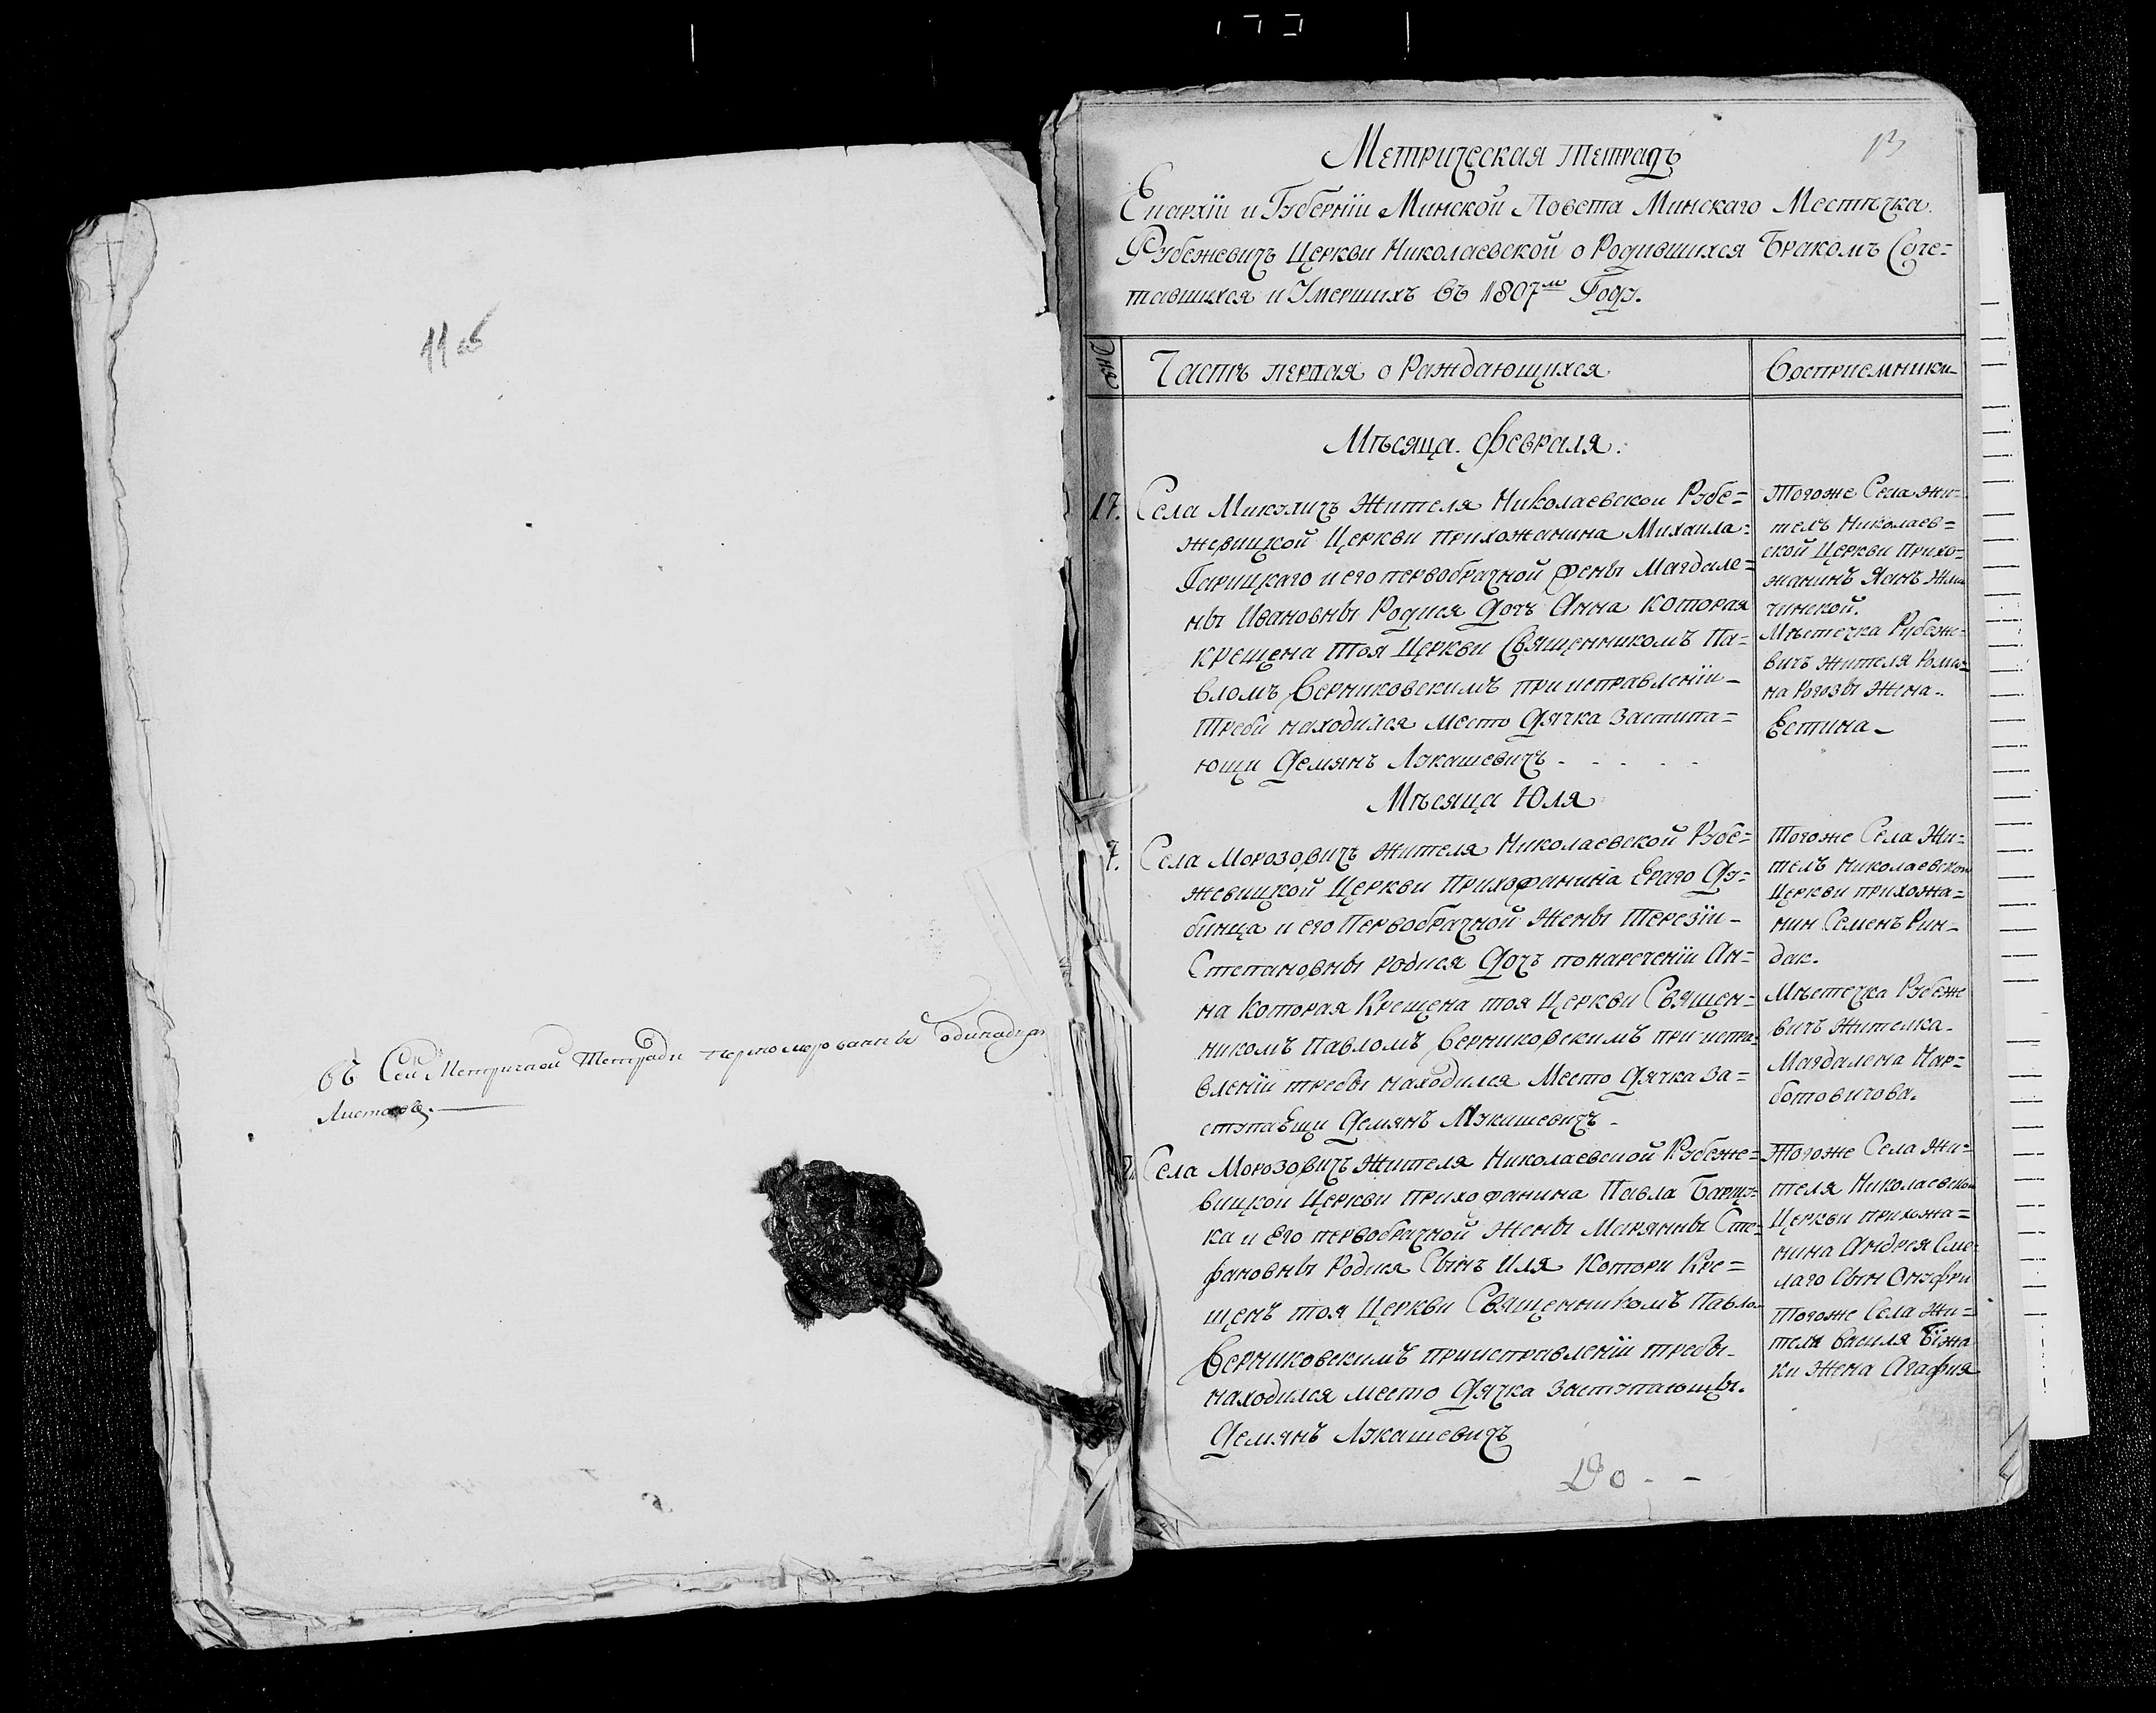 11 об
Въ Сей Метричной Тетради перномерованны одинадцат
Листовъ.
13
Метрическая тетрадъ
Епархїи и Губернїи Минской Повета Минскаго Местечка
Рубежевичъ Церкви Николаевской о Родившихся Бракомъ Соче=
тавшихся и Умершихъ въ 1807м Году.
Дня
Часть первая о Раждающихся
Восприемники
Мѣсяца Февраля:
17. Села Микуличъ Жителя Николаевской Рубе=
жевицкой Церкви прихожанина Михаила
Гарицкаго и его первобрачной жены Магдале=
ны Ивановны Родися дочь Анна которая
крещена тоя Церкви Священникомъ Па=
вломъ Верниковскимъ при исправленїи
Треби находился место дячка заступа=
ющи Демянъ Лукашевичъ
Тогоже Села жи=
тель Николаев=
ской Церкви прихо=
жанинъ Янъ
чинской.
Мѣстечка Рубеже=
вичъ жителя Рома=
на Рогозы жена
Естина
Мѣсяца Юля
7. Села Морозовичъ жителя Николаевской Рубе=
жевицкой Церкви Прихожанина Ераго Дя=
бинца и его Первобрачной Жены Терезїи
Степановны родися дочъ понаречении Ан=
на Которая Крещена тоя Церкви Священ=
никомъ Павломъ Верниковскимъ при испра=
вленїи требы находился Место дячка за=
ступаЕщи Демянъ Лукишевичъ
Тогоже Села Жи=
тель Николаевской
Церкви прихожа=
нин Семенъ Рин=
дак.
Мѣстечка Рубеже
вичъ жителка
Магдалена Нар=
ботовичова.
Села Морозовичъ Жителя Николаевской Рубеже=
вицкой Церкви прихожанина Павла Барту=
ка и Его первобрачной жены Марянны Сте=
фановны Родися Сынъ Иля Котори Кре=
щенъ тоя Церкви Священникомъ Павло
Верниковскимъ приисправленїи требы
находился место дячка заступающы.
Демянъ Лукашевичъ
Тогоже Села Жи=
теля Николаевской
Церкви прихожа=
нина Андрея Сме
лаго Сын Онуфри
Тогоже Села Жи=
теля Василя
ки жена Агафия